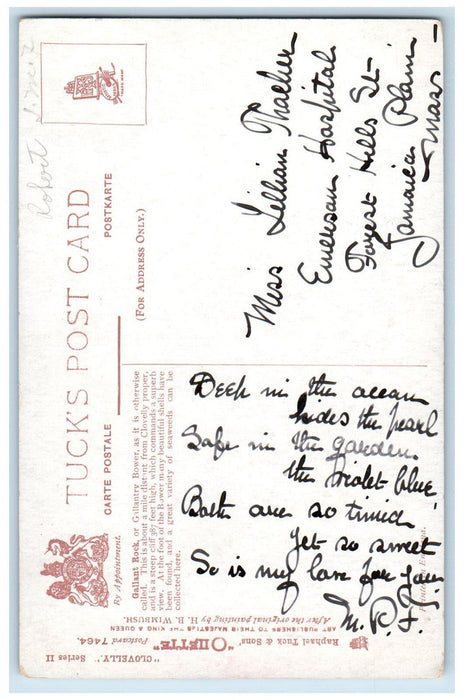 Robert
TUCK'S POST CARD
CARTE POSTALE
POSTKARTE
(FOR ADDRESS ONLY.)
By Appointment.
Gallant Rock, or Gallantry Bower, as it is otherwise
called. This is about a mile distant from Clovelly proper,
and is a steep cliff 387 feet high, which commands a superb
view. At the foot of the Bower many beautiful shells have
been found, and a great variety of seaweeds can be
collected here.
Deep in the ocean
hides the pearl
Safe in the garden
the violet blue
Both are so timid
yet so sweet
So is my love for you.
M. R. F.
Miss Lillian Thacher
Emerson Hospital
Forest Hills St-
Jamaica Plain-
Mass-
Raphael Tuck & Sons' "OILETTE"
ART PUBLISHERS TO THEIR MAJESTIES THE KING & QUEEN
After the original painting by H. B. WIMBUSH.
"CLOVELLY." SERIES II
Postcard 7464.